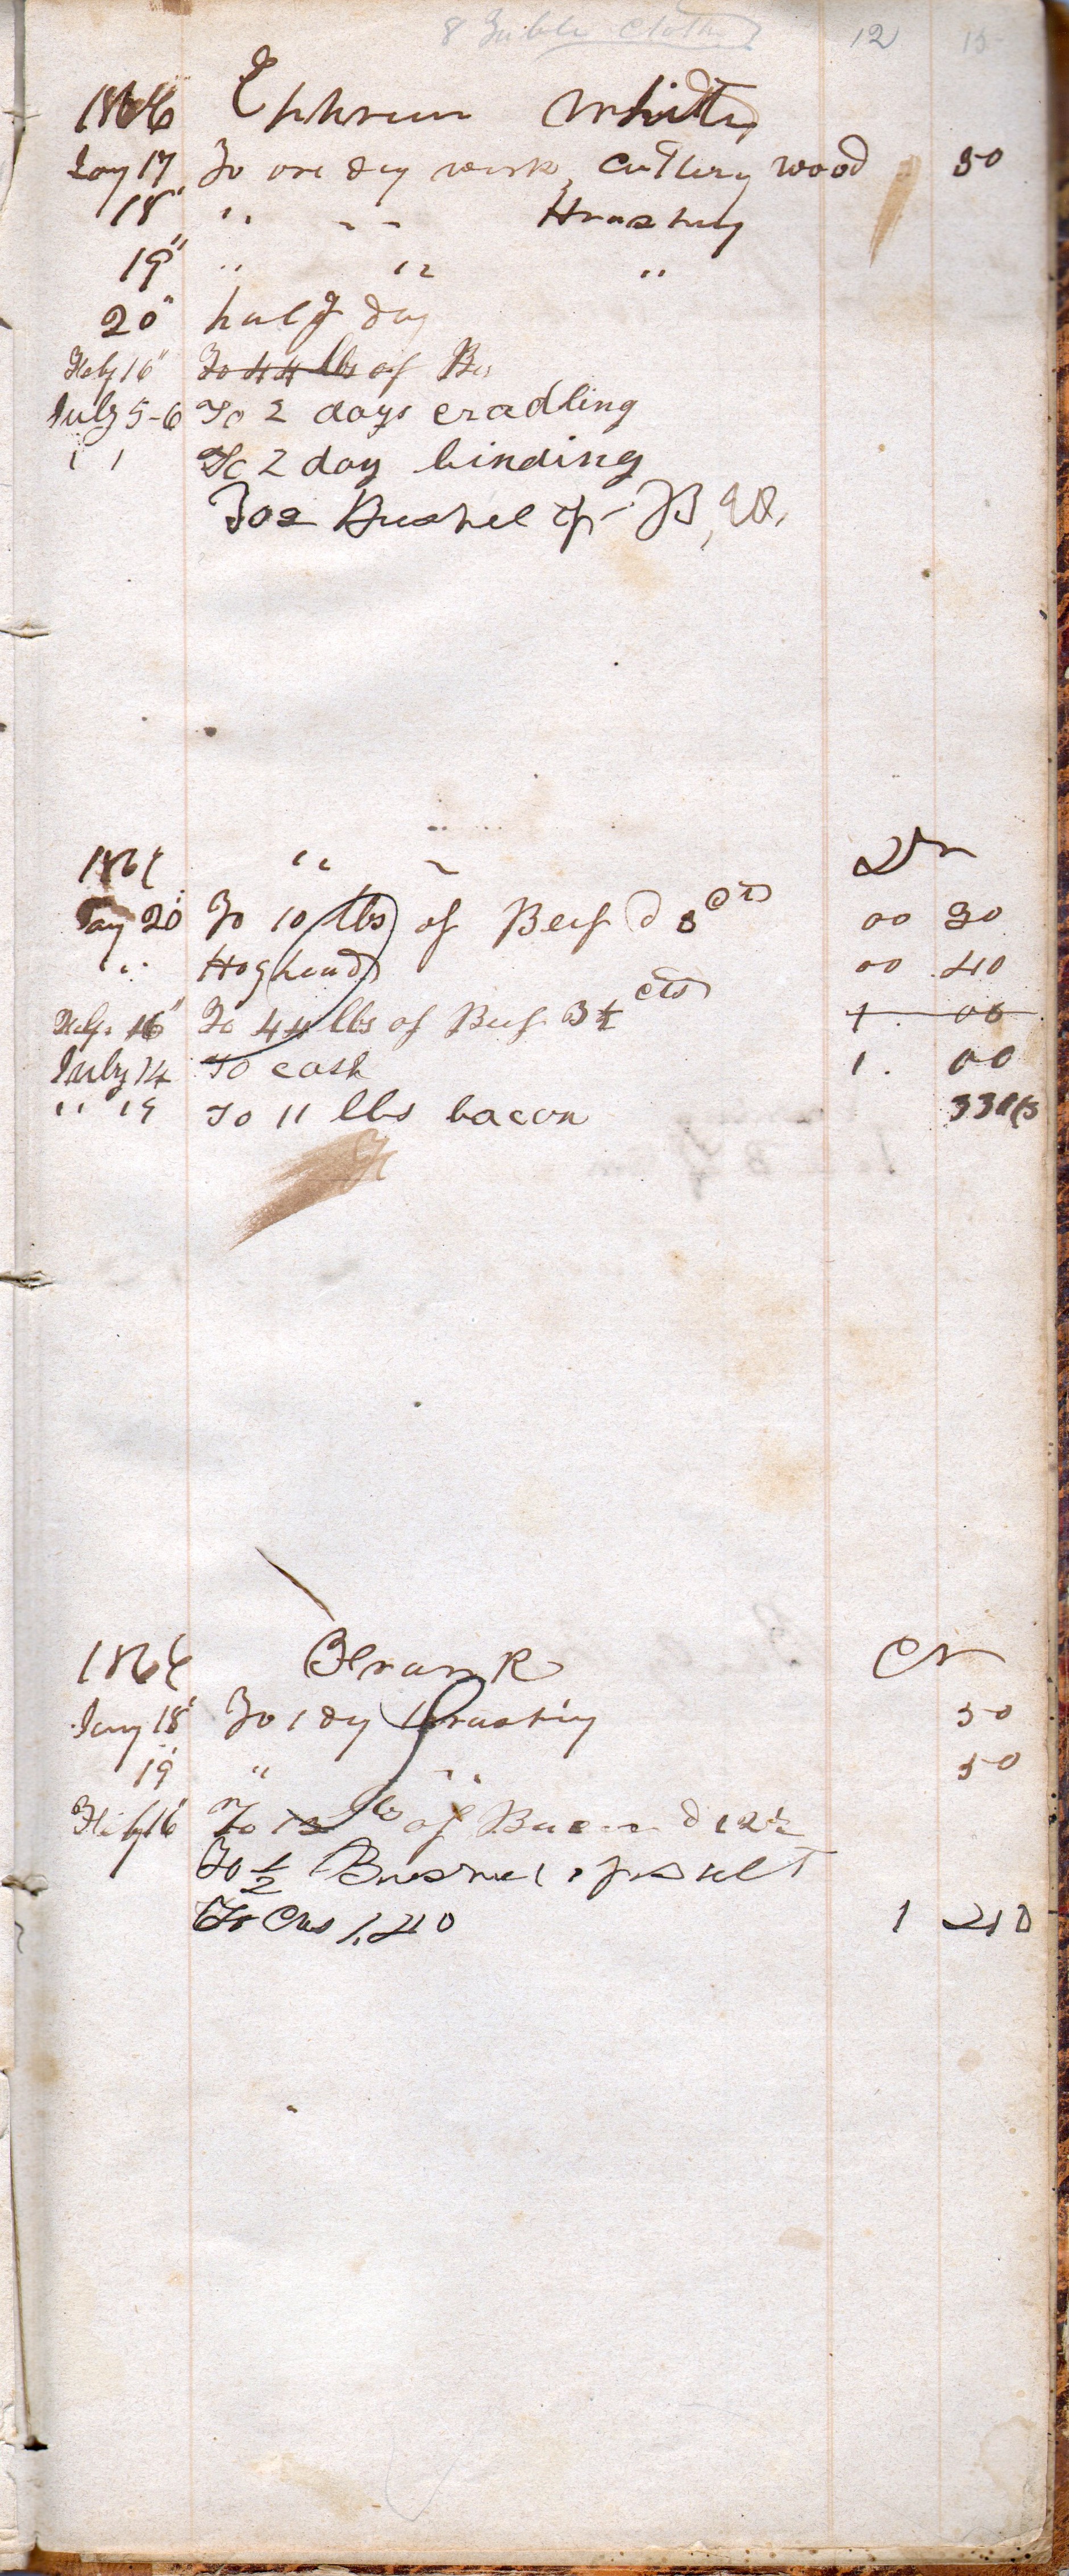 8 Table Cloths 12 15
1866 Ephrim White
Jany 17 To one day work, Cutting wood 50
18" " " " thrashing
19" " " "
20" half day
Feby 16" To 44 lbs of Be
July 5-6 To 2 days cradling
" " To 2 day binding
To 2 Bushel of B,
186 " "  Dr
Jany 20 To 10 lbs of Beef @ 3 cts 00 30
" " Hoghead 00 40
Feby 16" To 44 lbs of Beef 3½ cts 1. 00
July 14 To cash 1. 00
" 19 To 11 lbs bacon
186 Frank Cr
Jany 18" To 1 dy thrashing 50
19 " " " 50
Feby 16 To 12 lbs of Bacon @ 12½
To ½ Bushel of salt
To Cas 1.40 1 40